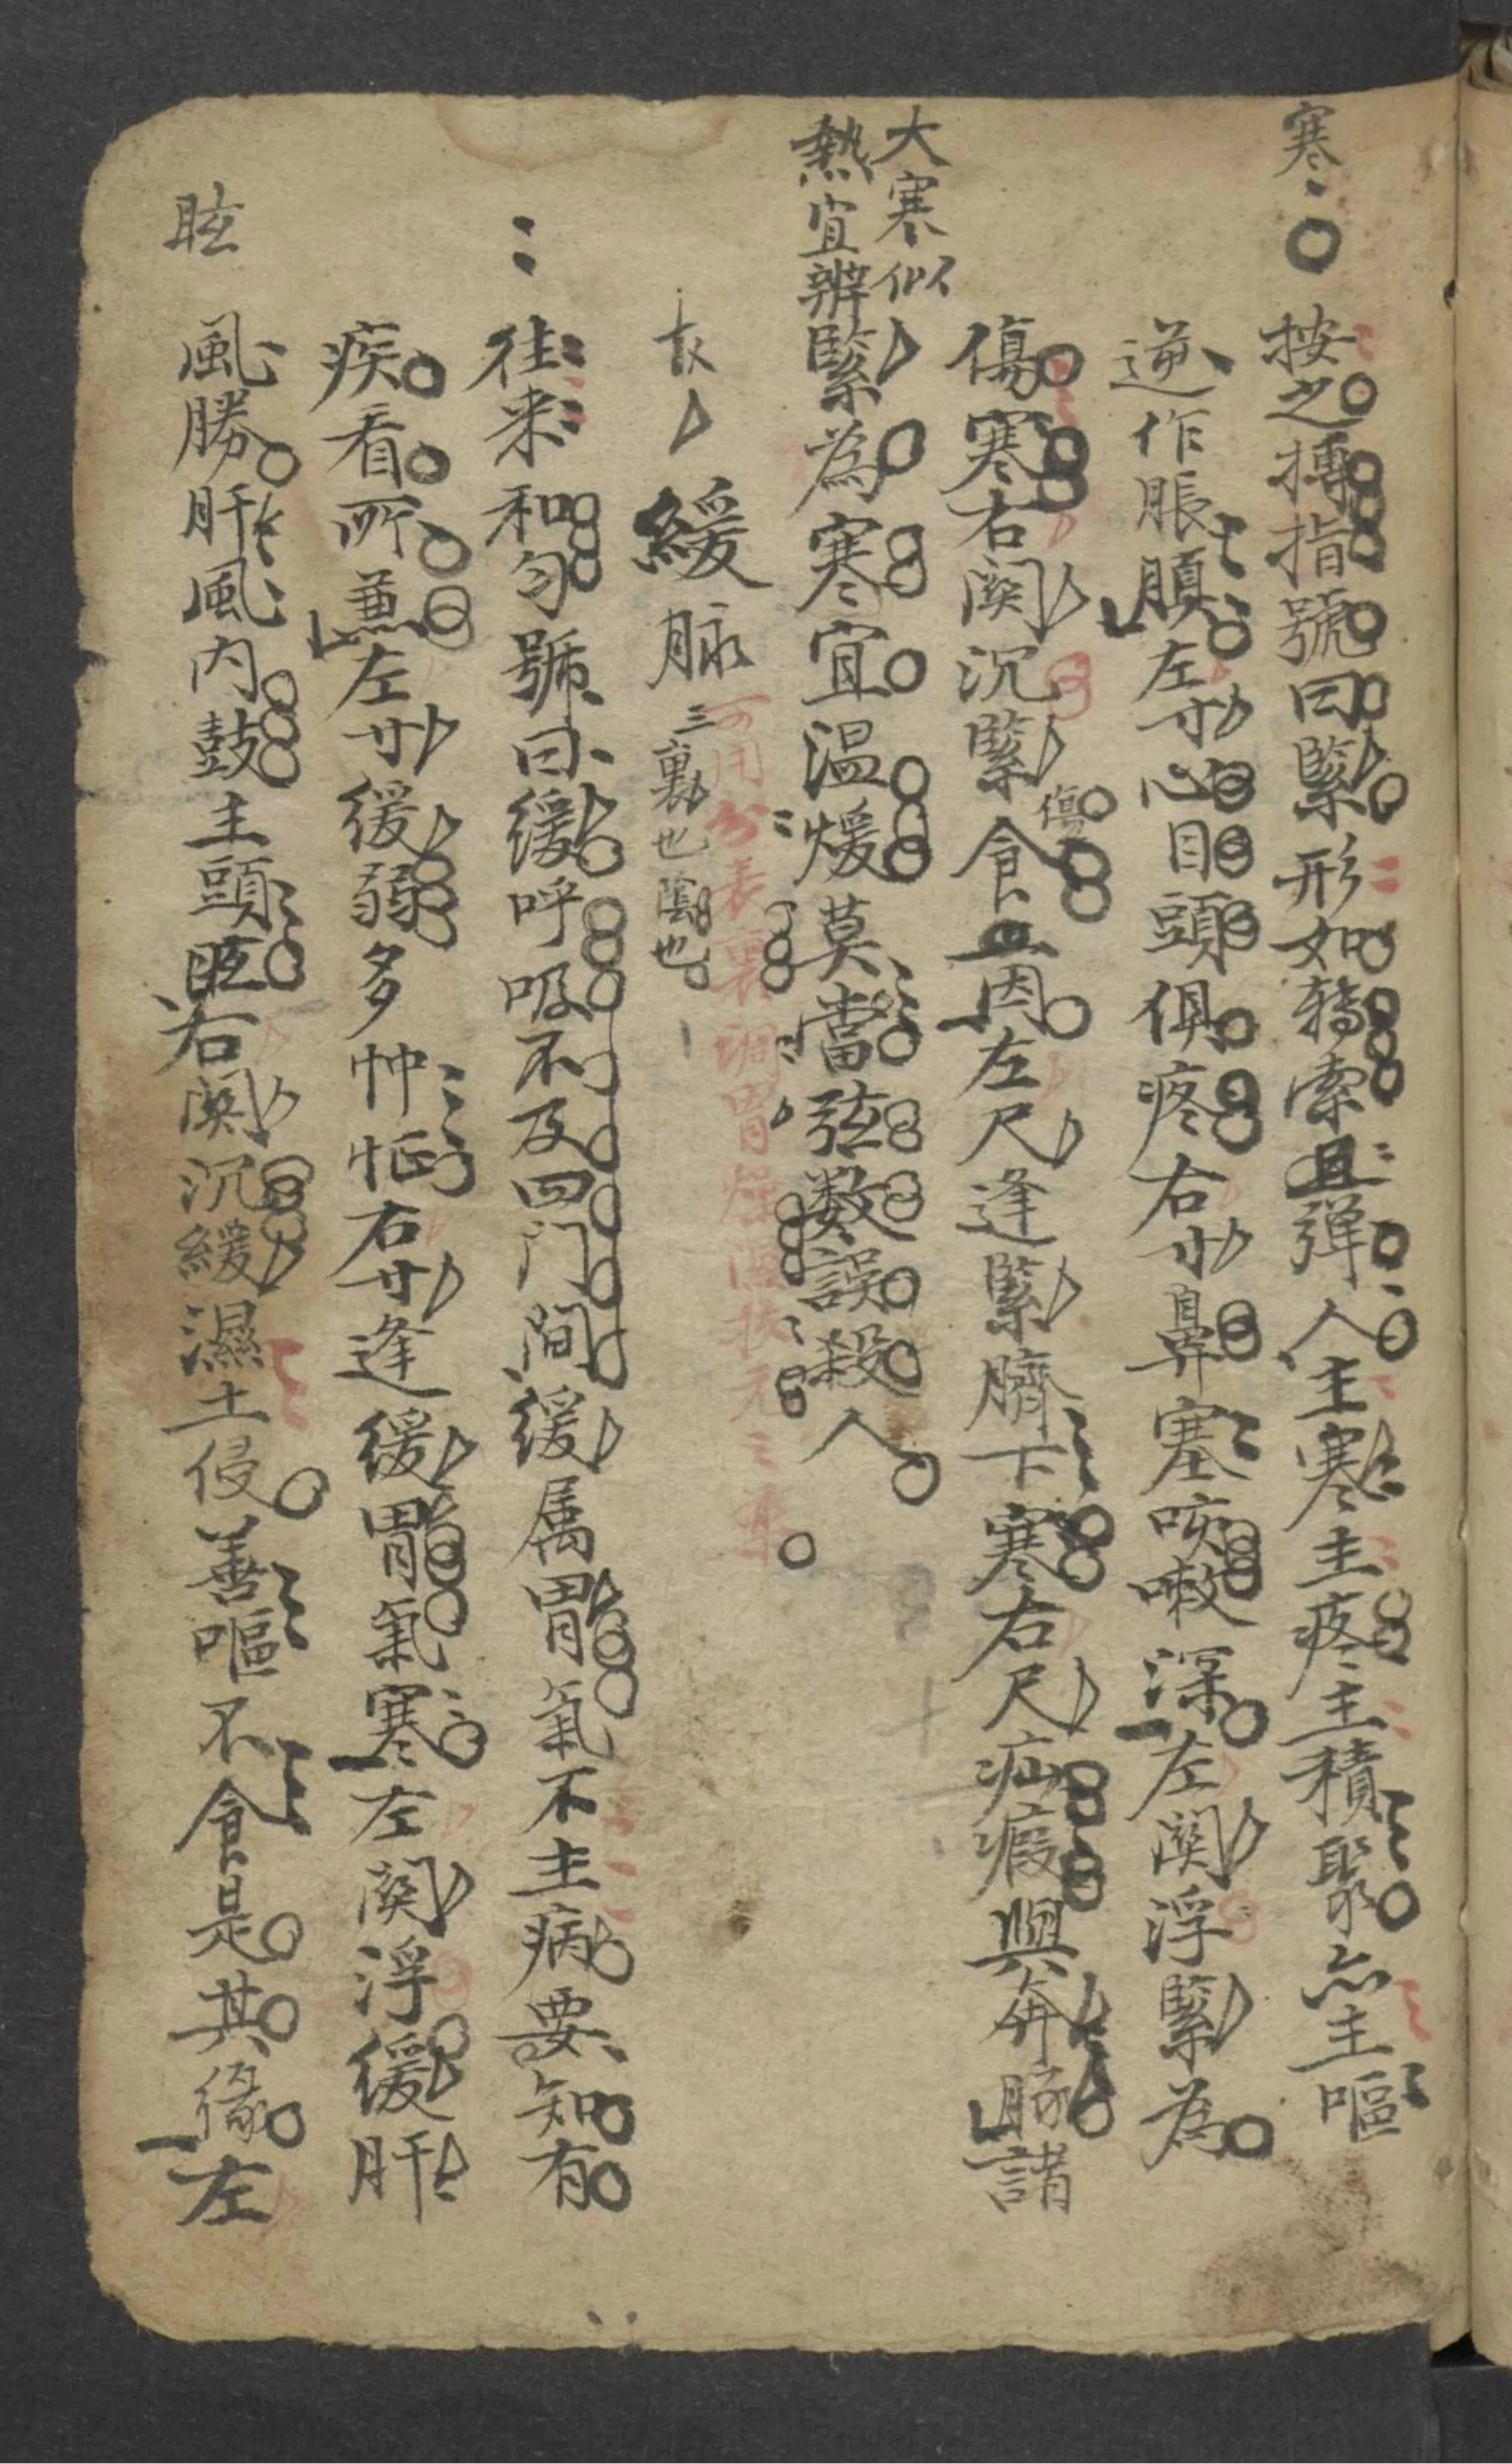 寒
按之搏指號曰緊形如轉索且彈人主寒主疼主積聚亦主嘔
逆作脹䐜左寸心目頭俱疼右寸鼻塞咳嗽深左関浮緊為
傷寒右関沉緊傷食血因左尺逢緊臍下寒右尺疝瘕與奔豚諸
大寒似
熱宜辨
緊為寒宜温煖莫當弦数誤殺人
緩脉 三裏也陰也
可用分表裏調胃
往来和匀號曰緩呼吸不及四门间緩属胃氣不主病要知有
疾看所兼左寸緩弱多忡怔右寸逢緩胃氣寒左関浮緩肝
眩
風勝肝風内鼓主頭眩右関沉緩濕土侵善嘔不食是其緣左